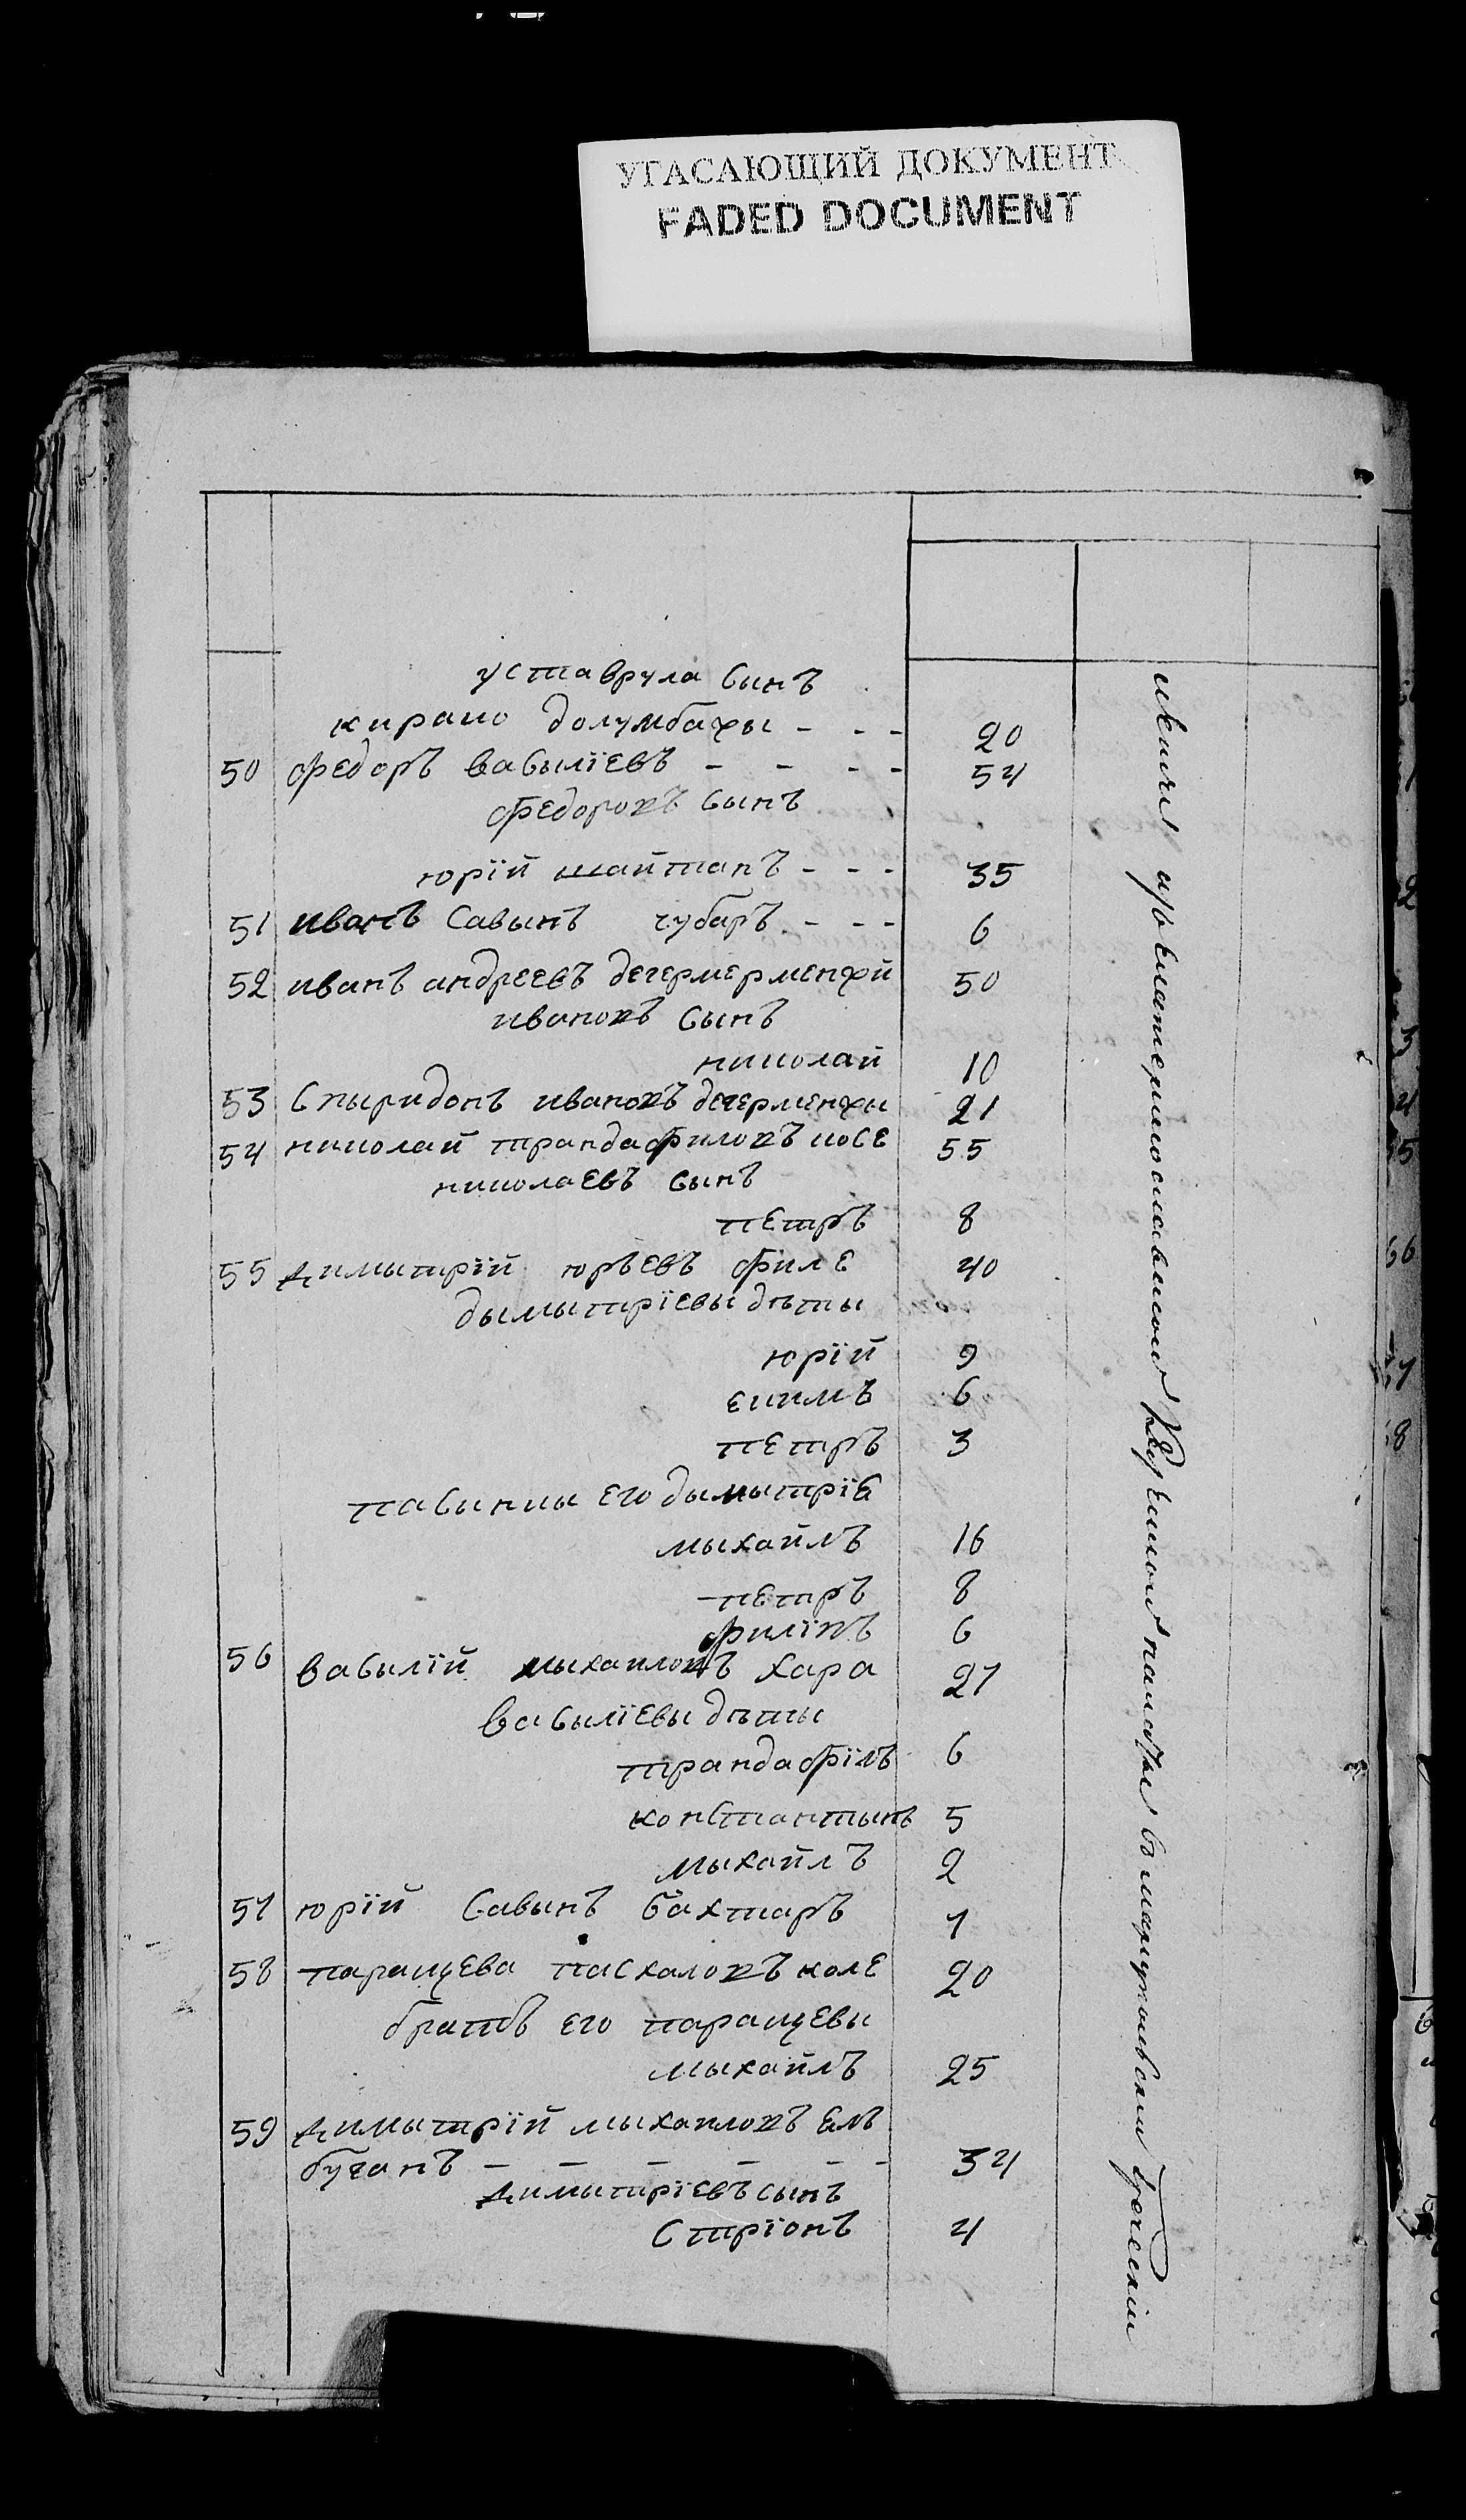 УГАСАЮЩИЙ ДОКУМЕНТ
FADED DOCUMENT
уставрула сынъ
кирако долумбаџы - - - 20
50 федоръ васылїевъ - - - - 54
федоровъ сынъ
юрїй шайтанъ - - - 35
51 иванъ савынъ чубаръ - - - 6
52 иванъ андреевъ дегермерменџи 50
ивановъ сынъ
николай 10
53 спыридонъ ивановъ дегерменџи 21
54 николай трандафиловъ косе 55
николаевъ сынъ
петръ 8
55 димытрїй юрьевъ филе 40
дымытрїевы дѣты
юрїй 9
екимъ 6
петръ 3
пасынкы его дымытрїе
мыхайлъ 16
петръ 8
филїпъ 6
56 васылїй мыхаиловъ хара 27
васылїевы дѣты
трандафїлъ 6
константынъ 5
мыхайлъ 2
57 юрїй савынъ бахтаръ 7
58 паращева пасхаловъ коле 20
братъ его паращевы
мыхайлъ 25
59 димытрїй мыхаиловъ ель
бузанъ - - - - - - 34
димытрїевъ сынъ
стрїонъ 4
екатеринославской
въ мариупольскїи греческїи